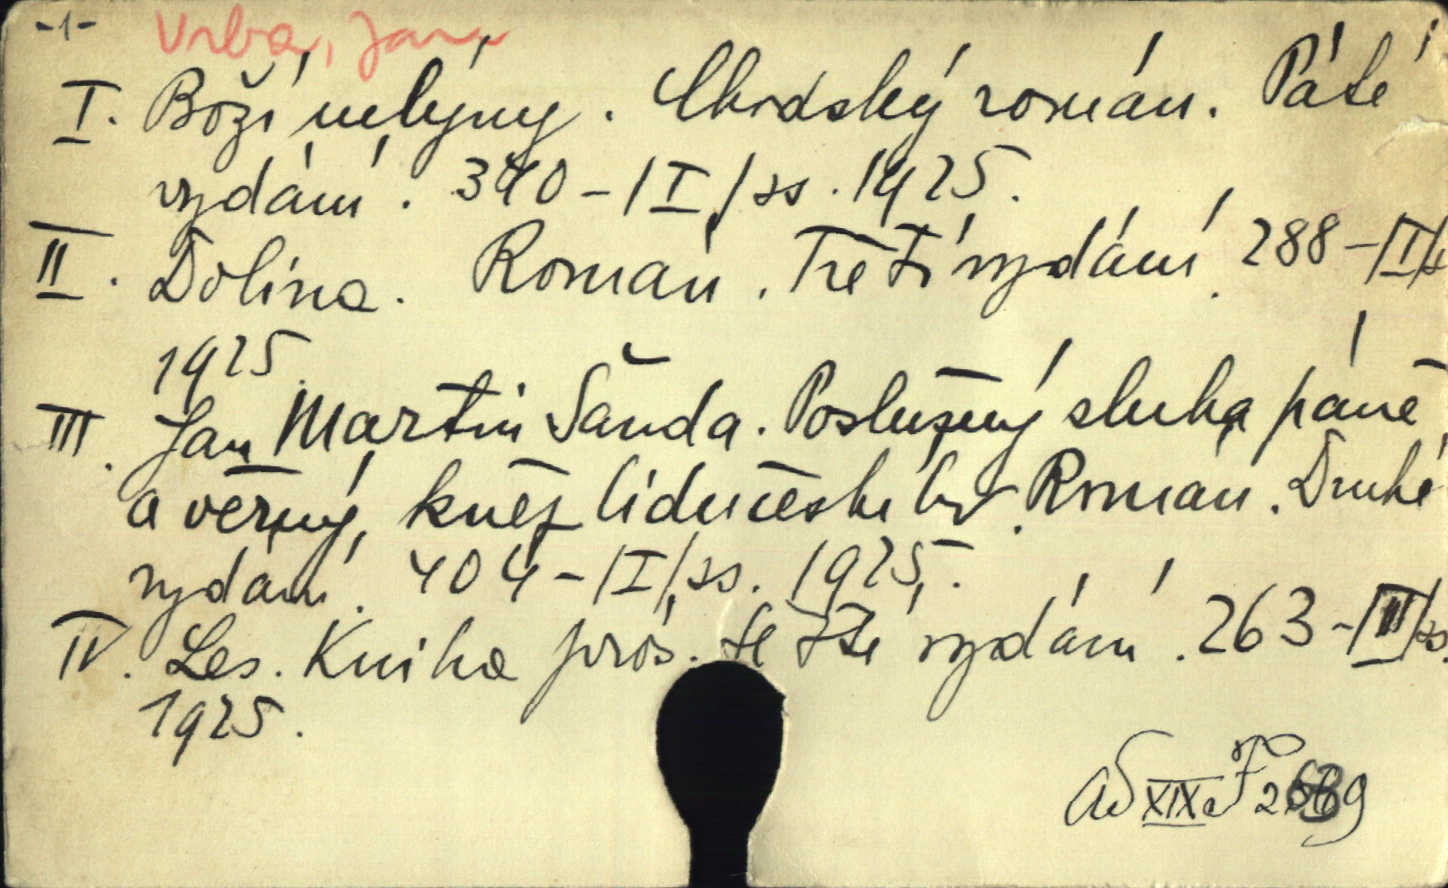 -1- Vrba, Jan
I. Boží mlýny. Chodský román. Páté
vydání. 340-/I/ss. 1925.
II. Dolina. Román. Třetí vydání. 288-/I/s
1925.
III. Jan Martin Šanda. Poslušný sluha páně
a věrný, kněz lidu českého. Román. Druhé
vydání. 404-/I/ss. 1925.
IV. Les. Kniha prós. vydání. 263-/II/ss.
1925.
ad XIX a F